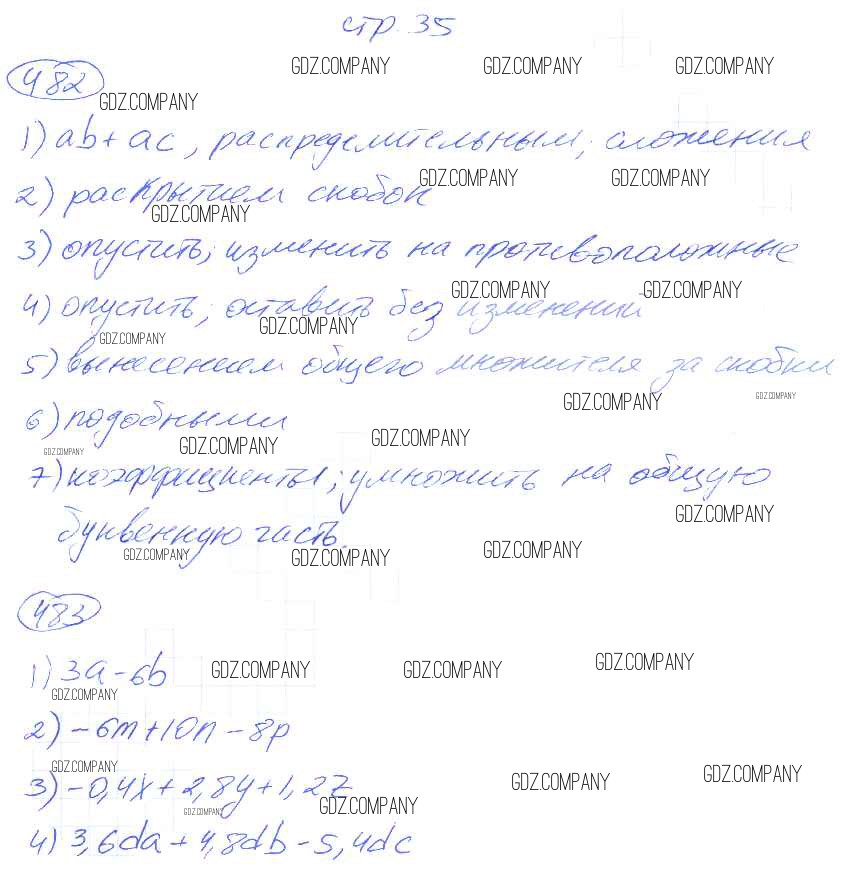 стр. 35
GDZ.COMPANY GDZ.COMPANY GDZ.COMPANY
482
GDZ.COMPANY
1) ab + ac, распределительным; сложения
GDZ.COMPANY GDZ.COMPANY
2) раскрытием скобок
GDZ.COMPANY
3) опустить; изменить на противоположные
GDZ.COMPANY GDZ.COMPANY
4) опустить; оставить без изменений
GDZ.COMPANY
GDZ.COMPANY
5) вынесением общего множителя за скобки
GDZ.COMPANY GDZ.COMPANY
6) подобными
GDZ.COMPANY GDZ.COMPANY GDZ.COMPANY
7) коэффициенты; умножить на общую
GDZ.COMPANY
буквенную часть.
GDZ.COMPANY GDZ.COMPANY GDZ.COMPANY
483
1) 3a - 6b GDZ.COMPANY GDZ.COMPANY GDZ.COMPANY
GDZ.COMPANY
2) -6m + 10n - 8p
GDZ.COMPANY
3) -0,4x + 2,8y + 1,2z GDZ.COMPANY GDZ.COMPANY
GDZ.COMPANY GDZ.COMPANY
4) 3,6da + 4,8db - 5,4dc